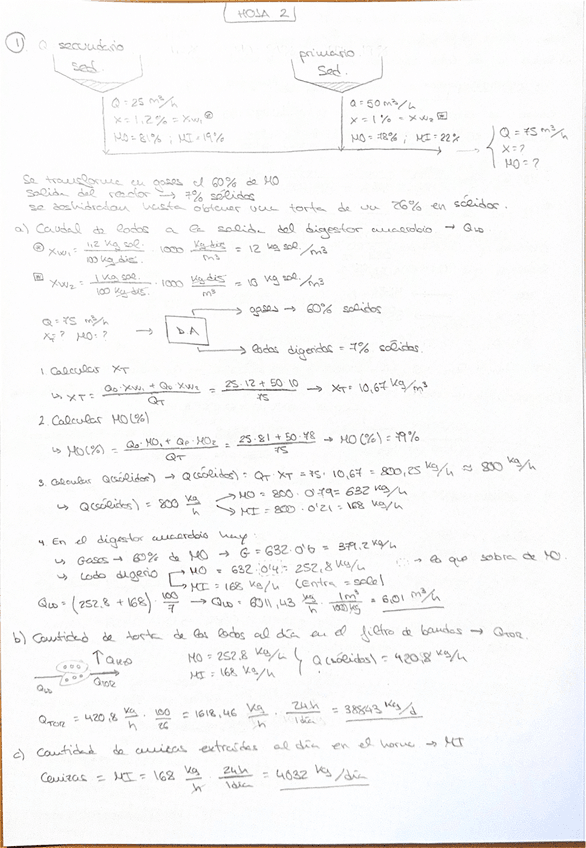 HOJA 2
① secundario
Sed.
primario
Sed.
Q = 25 m³/h
X = 1,2% = Xw₁
MO = 81% ; MI = 19%
Q = 50 m³/h
X = 1% = Xw₂
MO = 78% ; MI = 22%
Q = 75 m³/h
X = ?
MO = ?
Se transforma en gases el 60% de MO
Salida del reactor → 7% sólidos
se deshidratan hasta obtener una torta de un 26% en sólidos.
a) Caudal de lodos a la salida del digestor anaerobio → QLD.
Xw₁ = 1,2 kg sol. / 100 kg dis. · 1000 kg dis / m³ = 12 kg sol. / m³
Xw₂ = 1 kg sol. / 100 kg dis. · 1000 kg dis / m³ = 10 kg sol. / m³
Q = 75 m³/h
X = ? MO = ?
DA
gases → 60% solidos
lodos digeridos = 7% sólidos.
1. Calcular XT
↳ XT = (Q · Xw₁ + Qp · Xw₂) / QT = (25 · 12 + 50 · 10) / 75 → XT = 10,67 kg/m³
2. Calcular MO(%)
↳ MO(%) = (Q · MO₁ + Qp · MO₂) / QT = (25 · 81 + 50 · 78) / 75 → MO(%) = 79%
3. Calcular Q(sólidos) → Q(sólidos) = QT · XT = 75 · 10,67 = 800,25 kg/h ≈ 800 kg/h
↳ Q(sólidos) = 800 kg/h
MO = 800 · 0'79 = 632 kg/h
MI = 800 · 0'21 = 168 kg/h
4. En el digestor anaerobio hay:
↳ Gases → 60% de MO → G = 632 · 0'6 = 379,2 kg/h
↳ Lodo digerido
MO = 632 · 0'4 = 252,8 kg/h → lo que sobra de MO.
MI = 168 kg/h (entra = sale)
QLD = (252,8 + 168) · 100/7 → QLD = 6011,43 kg/h · 1m³/1000kg = 6,01 m³/h
b) Cantidad de torta de los lodos al día en el filtro de bandas → QTOR.
QLD
QTOR
MO = 252,8 kg/h
MI = 168 kg/h
Q(sólidos) = 420,8 kg/h
QTOR = 420,8 kg/h · 100/26 = 1618,46 kg/h · 24h/1día = 38843 kg/d
c) Cantidad de cenizas extraídas al día en el horno → MI
Cenizas = MI = 168 kg/h · 24h/1día = 4032 kg/día